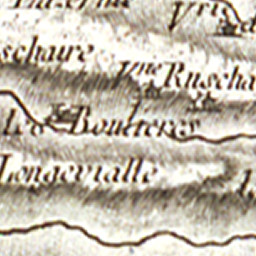 V.ris
schaire
V.ne Ruscha
Les Bouteres
Longevialle